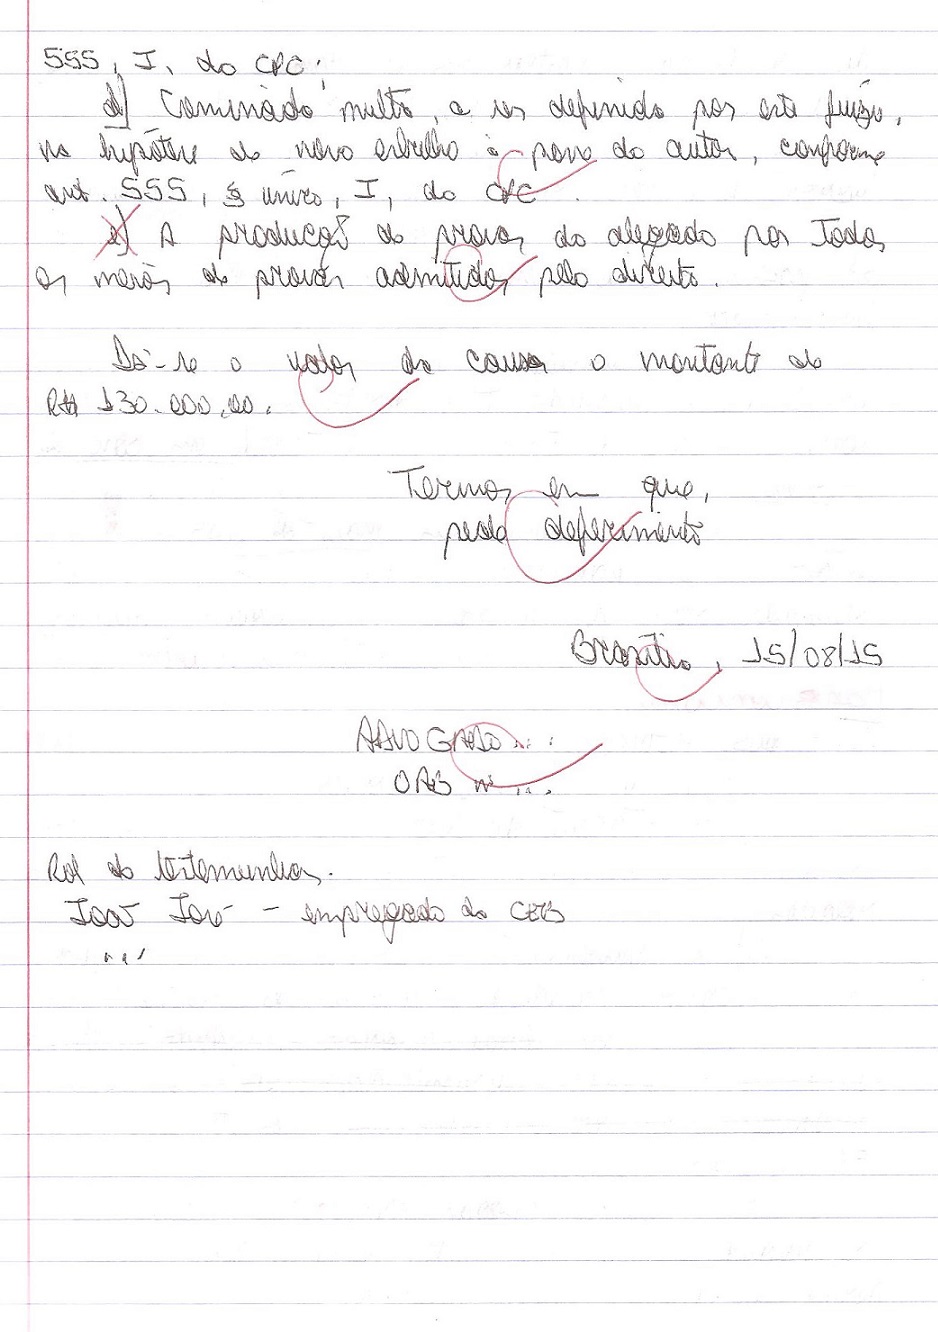 555, I, do CPC;
d) Cominado multa, a ser definida por este juízo,
na hipótese de novo esbulho à posse do autor, conforme
art. 555, § único, I, do CPC.
e) A produção de provas do alegado por todos
os meios de provas admitidos pelo direito.
Dá-se o valor da causa o montante de
R$ 130.000,00.
Termos em que,
pede deferimento
Brasília, 15/08/15
ADVOGADO ...
OAB nº ...
Rol de testemunhas.
João José - empregado da CEB
...